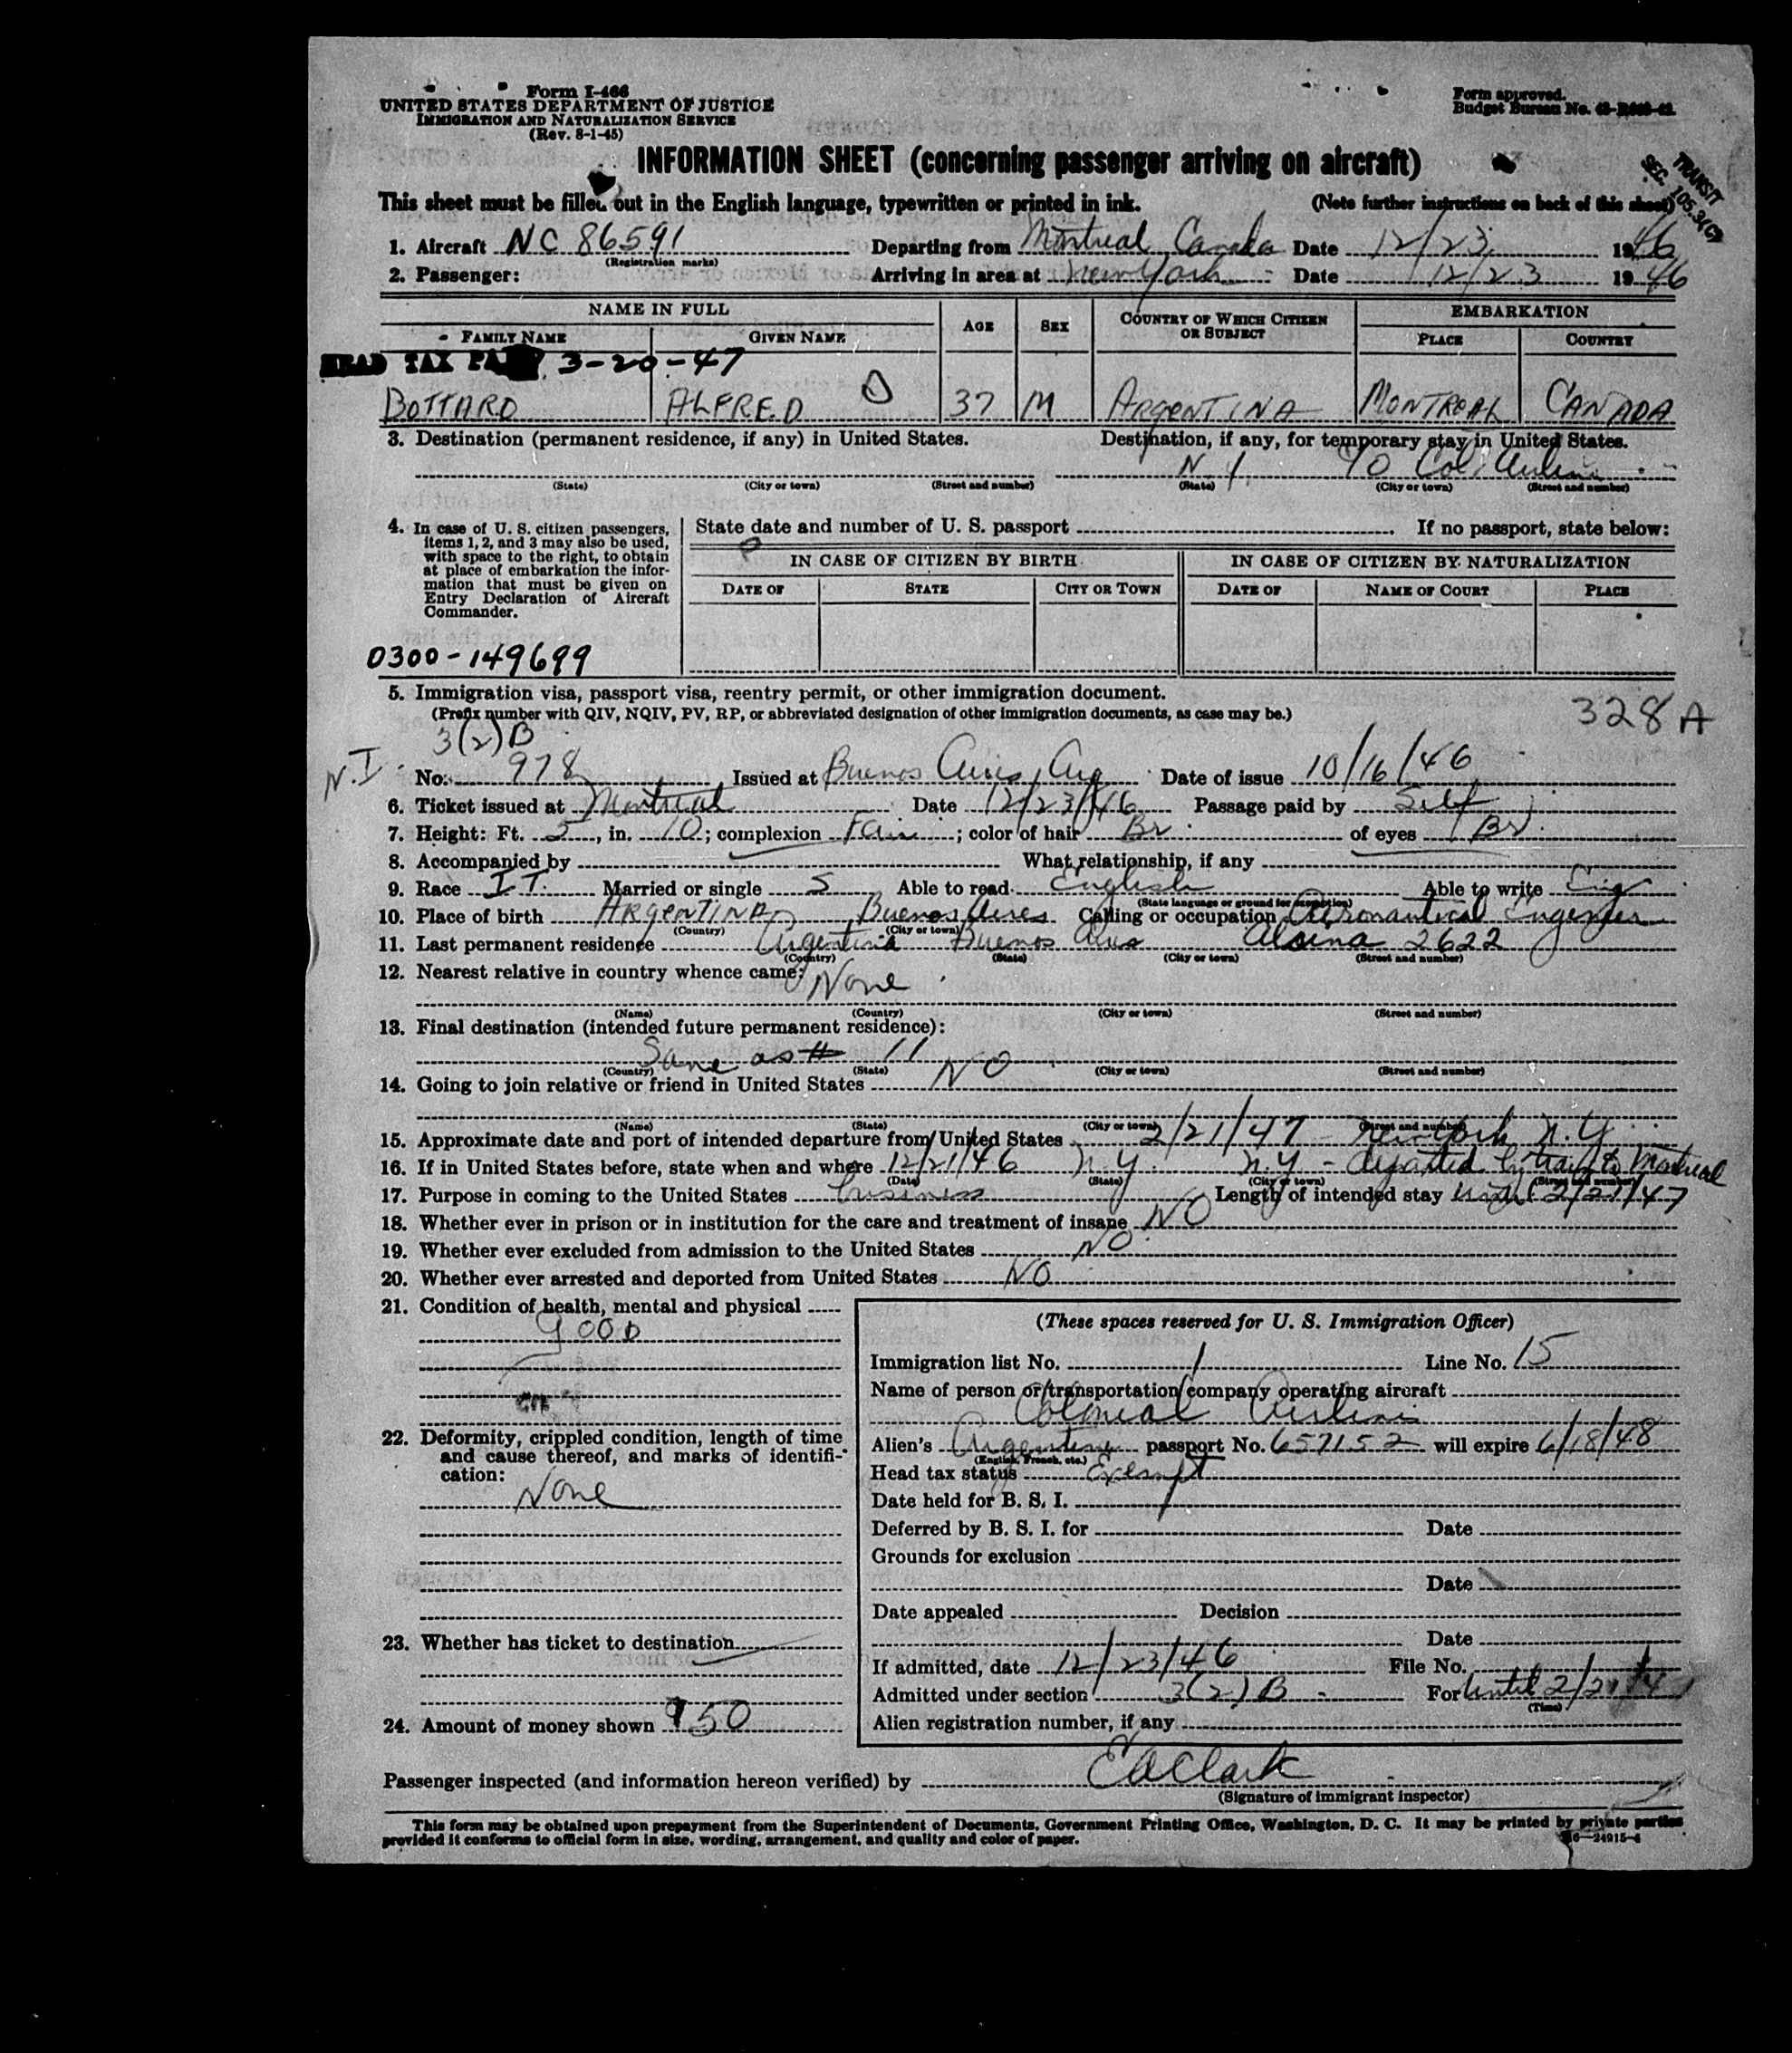 Form I-466
UNITED STATES DEPARTMENT OF JUSTICE
IMMIGRATION AND NATURALIZATION SERVICE
(Rev. 8-1-45)
Form approved.
Budget Bureau No.
INFORMATION SHEET (concerning passenger arriving on aircraft)
TRANSIT
SEC. 105.3(C)
This sheet must be filled out in the English language, typewritten or printed in ink. (Note further instructions on back of this sheet)
1. Aircraft NC 86591 Departing from Montreal, Canada Date 12/23 1946
(Registration marks)
2. Passenger: Arriving in area at New York Date 12/23 1946
NAME IN FULL AGE SEX COUNTRY OF WHICH CITIZEN OR SUBJECT EMBARKATION
FAMILY NAME GIVEN NAME PLACE COUNTRY
HEAD TAX PAID 3-20-47
BOTTARO ALFREDO 37 M ARGENTINA MONTREAL CANADA
3. Destination (permanent residence, if any) in United States. Destination, if any, for temporary stay in United States.
N Y % Col. Airlines
(State) (City or town) (Street and number) (State) (City or town) (Street and number)
4. In case of U. S. citizen passengers, items 1, 2, and 3 may also be used, with space to the right, to obtain at place of embarkation the information that must be given on Entry Declaration of Aircraft Commander.
State date and number of U. S. passport If no passport, state below:
IN CASE OF CITIZEN BY BIRTH IN CASE OF CITIZEN BY NATURALIZATION
DATE OF STATE CITY OR TOWN DATE OF NAME OF COURT PLACE
0300-149699
5. Immigration visa, passport visa, reentry permit, or other immigration document.
(Prefix number with QIV, NQIV, PV, RP, or abbreviated designation of other immigration documents, as case may be.)
328 A
3(2)B
N.I. No. 978 Issued at Buenos Aires, Arg Date of issue 10/16/46
6. Ticket issued at Montreal Date 12/23/46 Passage paid by Self
7. Height: Ft. 5, in. 10; complexion Fair; color of hair Br of eyes Br
8. Accompanied by What relationship, if any
9. Race IT. Married or single S Able to read English Able to write Eng
(State language or ground for exemption)
10. Place of birth ARGENTINA Buenos Aires Calling or occupation Aeronautical Engineer
(Country) (City or town)
11. Last permanent residence Argentina Buenos Aires Alsina 2622
(Country) (State) (City or town) (Street and number)
12. Nearest relative in country whence came: None
(Name) (Country) (City or town) (Street and number)
13. Final destination (intended future permanent residence):
Same as # 11
(Country) (State) (City or town) (Street and number)
14. Going to join relative or friend in United States NO
(Name) (State) (City or town) (Street and number)
15. Approximate date and port of intended departure from United States 2/21/47 New York N.Y.
16. If in United States before, state when and where 12/21/46 N.Y. N.Y - departed by train to Montreal
(Date) (State) (City or town) (Street and number)
17. Purpose in coming to the United States business Length of intended stay until 2/21/47
18. Whether ever in prison or in institution for the care and treatment of insane NO
19. Whether ever excluded from admission to the United States NO
20. Whether ever arrested and deported from United States NO
21. Condition of health, mental and physical
GOOD
22. Deformity, crippled condition, length of time and cause thereof, and marks of identification:
None
23. Whether has ticket to destination
24. Amount of money shown 950
(These spaces reserved for U. S. Immigration Officer)
Immigration list No. 1 Line No. 15
Name of person or transportation company operating aircraft
Colonial Airlines
Alien's Argentine passport No. 657152 will expire 6/18/48
(English, French, etc.)
Head tax status Exempt
Date held for B. S. I.
Deferred by B. S. I. for Date
Grounds for exclusion
Date
Date appealed Decision
Date
If admitted, date 12/23/46 File No.
Admitted under section 3(2)B For Until 2/21/47
(Time)
Alien registration number, if any
Passenger inspected (and information hereon verified) by EAClark
(Signature of immigrant inspector)
This form may be obtained upon prepayment from the Superintendent of Documents, Government Printing Office, Washington, D. C. It may be printed by private parties
provided it conforms to official form in size, wording, arrangement, and quality and color of paper.
16-24915-4